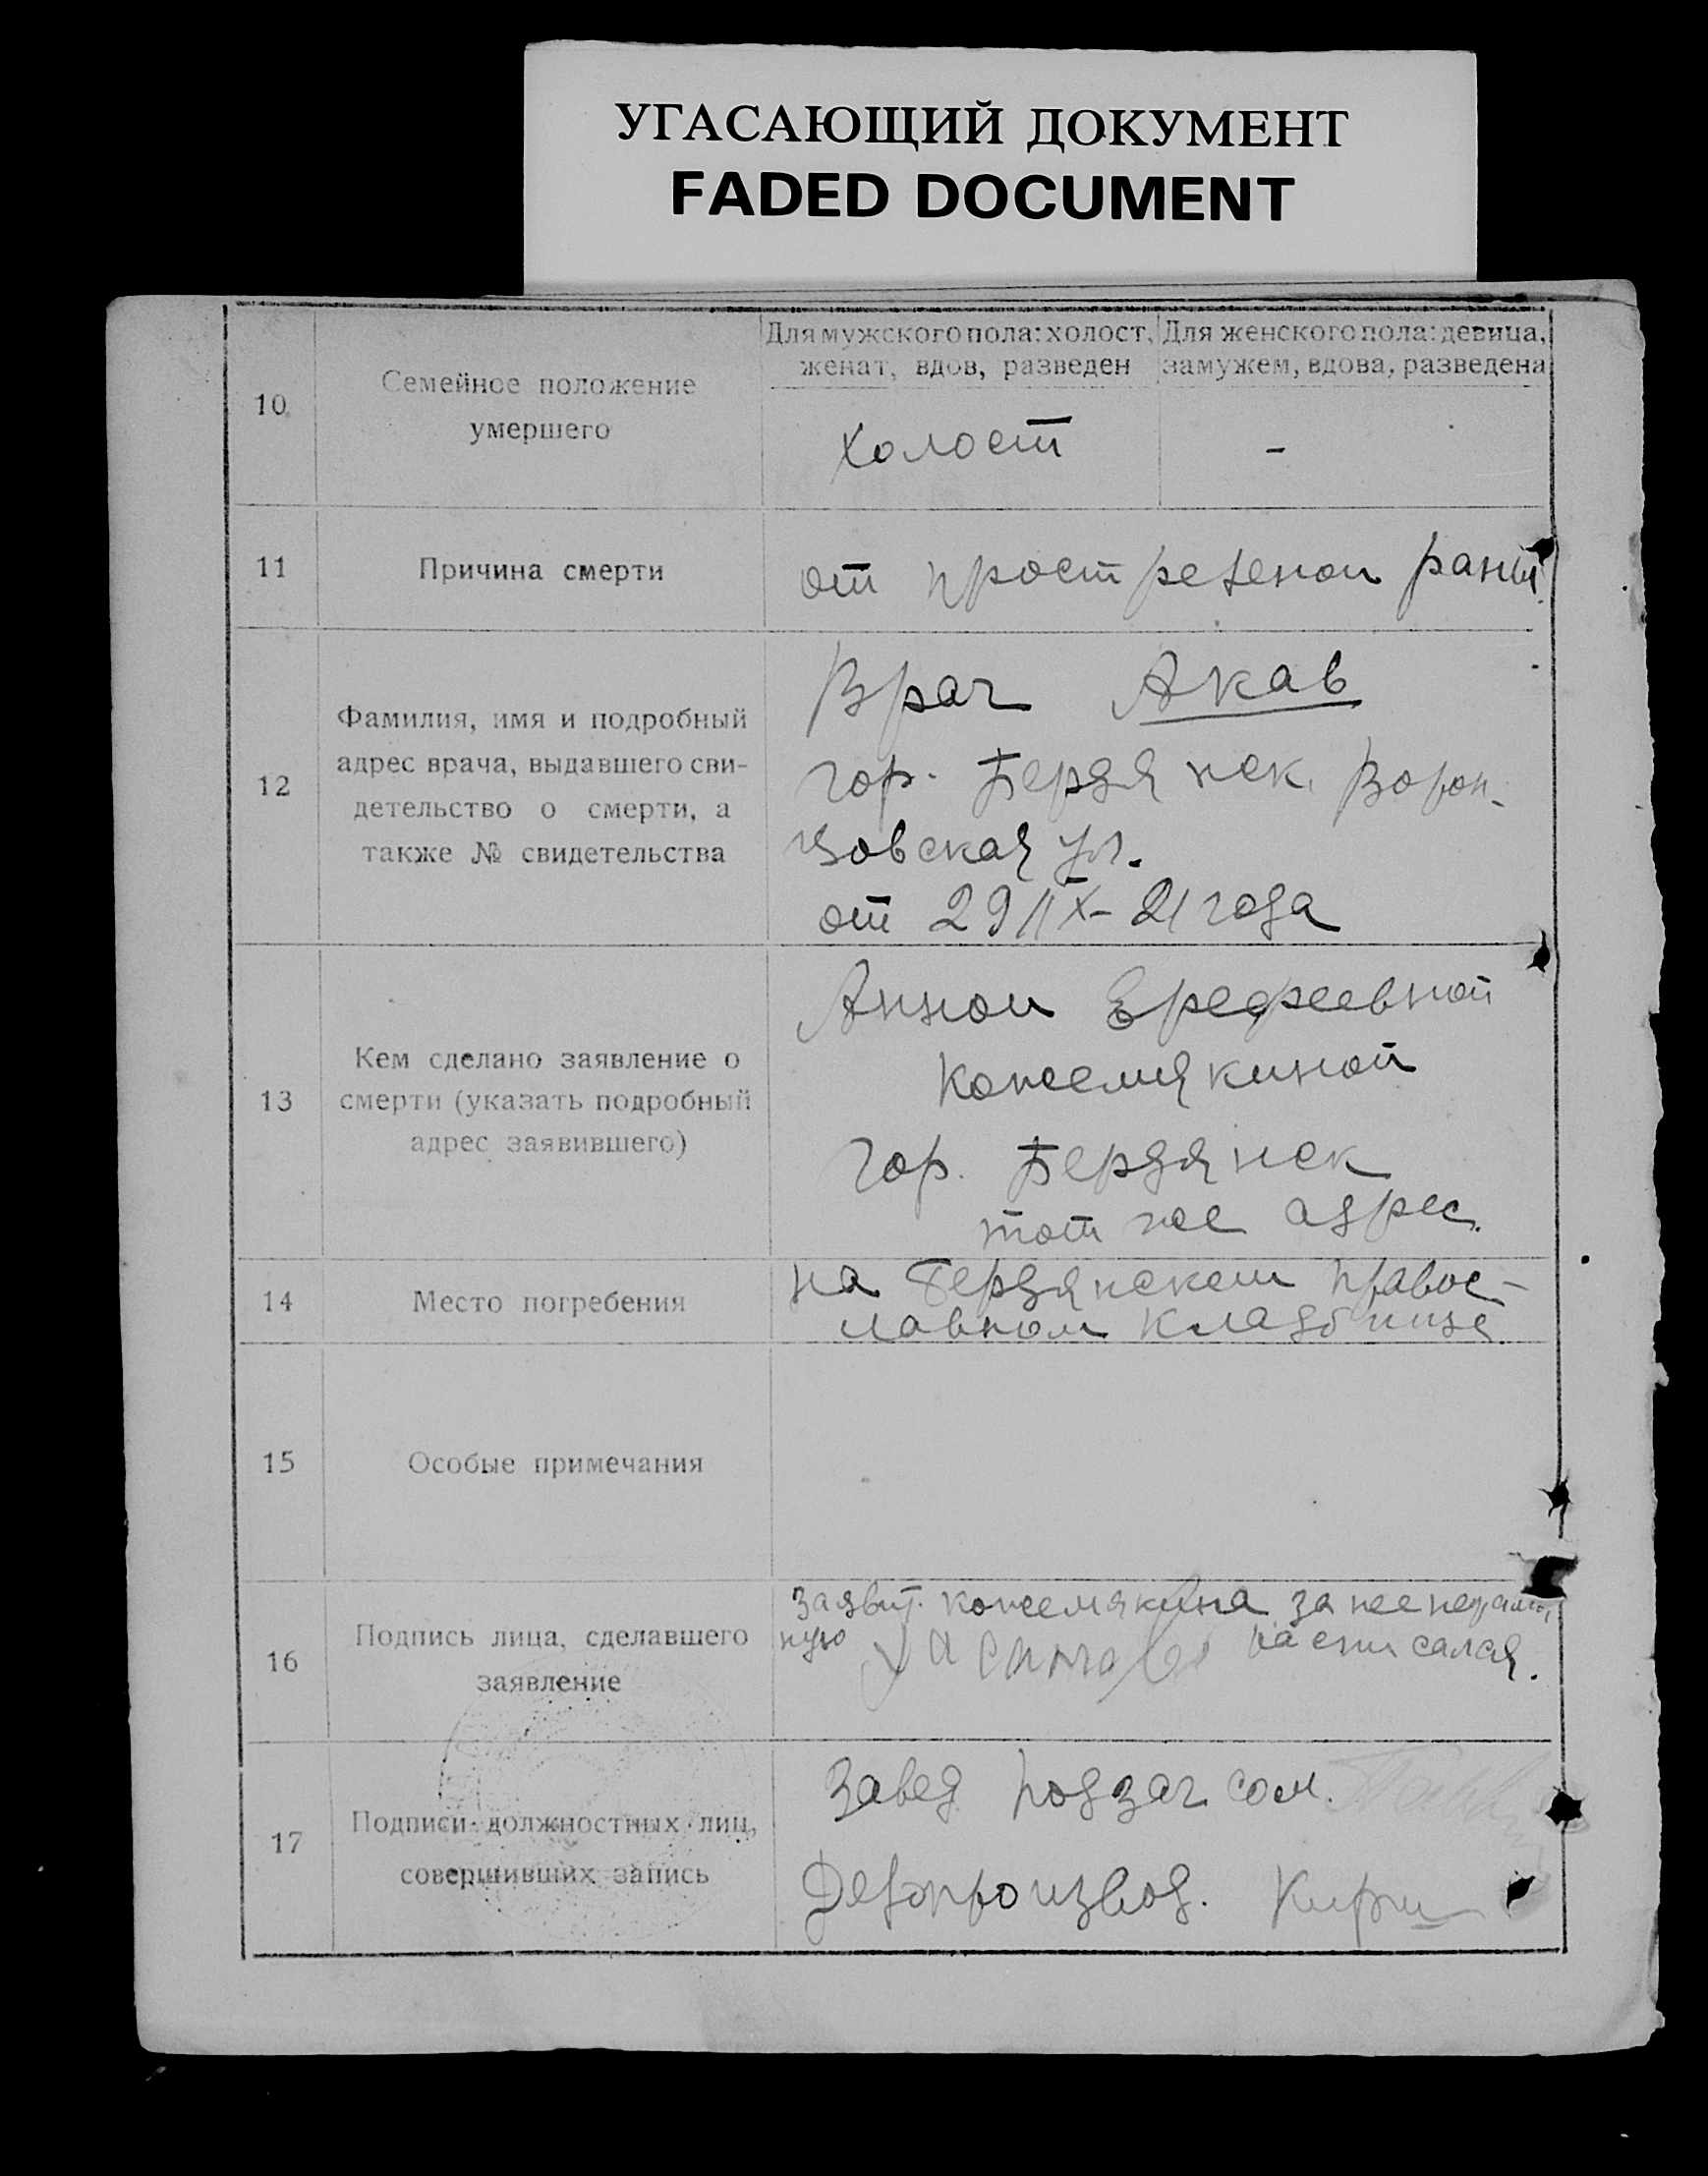 УГАСАЮЩИЙ ДОКУМЕНТ
FADED DOCUMENT
10
Семейное положение
умершего
Для мужского пола: холост,
женат, вдов, разведен
Для женского пола: девица,
замужем, вдова, разведена
холост
-
11
Причина смерти
от прострелен​ой раны
12
Фамилия, имя и подробный
адрес врача, выдавшего сви-
детельство о смерти, а
также № свидетельства
Врач Акав
гор. Бердянск. Ворон-
цовская ул.
от 29/IX-21 года
13
Кем сделано заявление о
смерти (указать подробный
адрес заявившего)
Анной Ерефеевной
Кожемякиной
гор. Бердянск
тот же адрес.
14
Место погребения
на Бердянском правос-
лавном кладбище
15
Особые примечания
16
Подпись лица, сделавшего
заявление
Заявит. Кожемякина за нее неграмот
ную расписался.
17
Подписи должностных лиц,
совершивших запись
Завед подзагсом.
Делопроизвод.